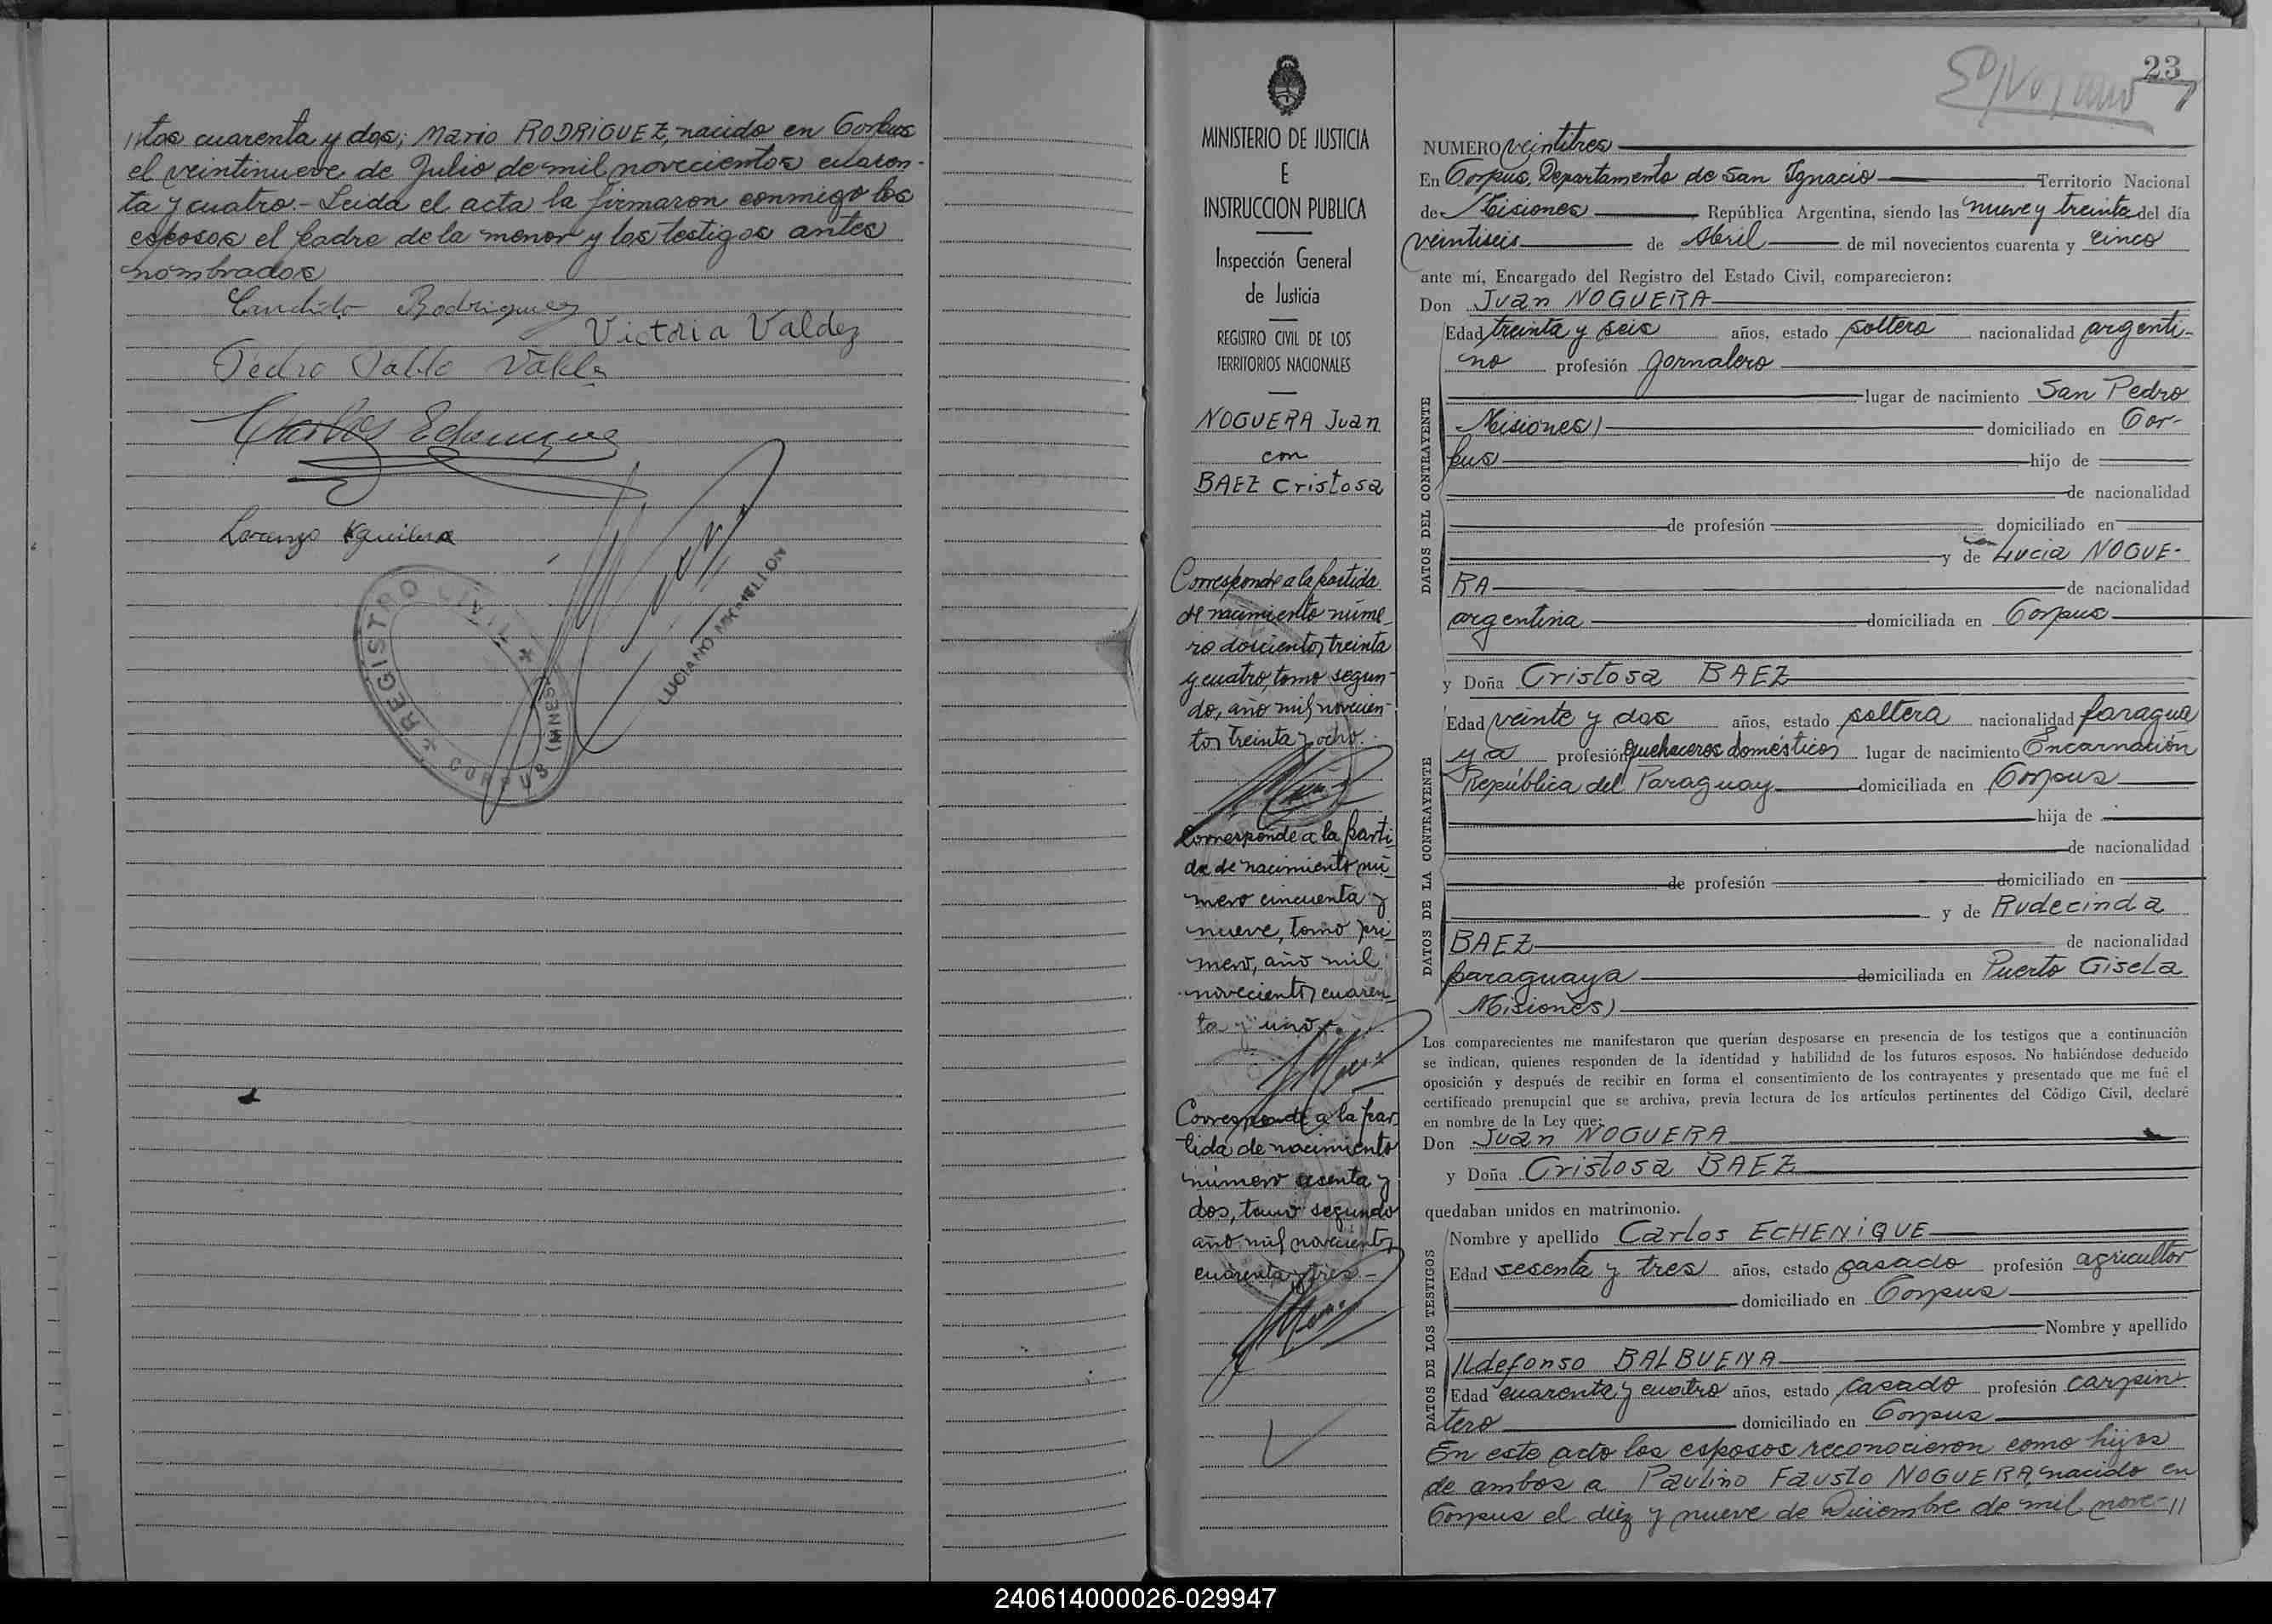 //tos cuarenta y dos; Mario RODRIGUEZ, nacido en Corpus
el veintinueve de Julio de mil novecientos cuaren-
ta y cuatro.- Leida el acta la firmaron conmigo los
esposos el padre de la menor y los testigos antes
nombrados
Candido Rodriguez
Victoria Valdez
Pedro Pablo Valdez
Carlos Echenique
Lorenzo Aguilera
REGISTRO CIVIL
CORPUS (MISIONES)
LUCIANO MICHELLON
MINISTERIO DE JUSTICIA
E
INSTRUCCION PUBLICA
Inspección General
de Justicia
REGISTRO CIVIL DE LOS
TERRITORIOS NACIONALES
NOGUERA Juan
con
BAEZ Cristosa
Corresponde a la partida
de nacimiento núme-
ro doscientos treinta
y cuatro, tomo segun-
do, año mil novecien-
tos treinta y ocho.-
Corresponde a la parti-
da de nacimiento nú-
mero cincuenta y
nueve, tomo pri-
mero, año mil
novecientos cuaren-
ta y uno.
Corresponde a la par-
tida de nacimiento
número sesenta y
dos, tomo segundo
año mil novecientos
cuarenta y tres.-
23
NUMERO veintitres
En Corpus, Departamento de San Ignacio Territorio Nacional
de Misiones República Argentina, siendo las nueve y treinta del día
veintiseis de Abril de mil novecientos cuarenta y cinco
ante mí, Encargado del Registro del Estado Civil, comparecieron:
Don Juan NOGUERA
DATOS DEL CONTRAYENTE
Edad treinta y seis años, estado soltero nacionalidad argenti-
no profesión jornalero
lugar de nacimiento San Pedro
Misiones) domiciliado en Cor-
pus hijo de
de nacionalidad
de profesión domiciliado en
y de Lucia NOGUE-
RA de nacionalidad
argentina domiciliada en Corpus
y Doña Cristosa BAEZ
DATOS DE LA CONTRAYENTE
Edad veinte y dos años, estado soltera nacionalidad paragua
ya profesión quehaceros domésticos lugar de nacimiento Encarnación
República del Paraguay domiciliada en Corpus
hija de
de nacionalidad
de profesión domiciliado en
y de Rudecinda
BAEZ de nacionalidad
paraguaya domiciliada en Puerto Gisela
Misiones)
Los comparecientes me manifestaron que querían desposarse en presencia de los testigos que a continuación
se indican, quienes responden de la identidad y habilidad de los futuros esposos. No habiéndose deducido
oposición y después de recibir en forma el consentimiento de los contrayentes y presentado que me fué el
certificado prenupcial que se archiva, previa lectura de los artículos pertinentes del Código Civil, declaré
en nombre de la Ley que:
Don Juan NOGUERA
y Doña Cristosa BAEZ
quedaban unidos en matrimonio.
DATOS DE LOS TESTIGOS
Nombre y apellido Carlos ECHENIQUE
Edad sesenta y tres años, estado casado profesión agricultor
domiciliado en Corpus
Nombre y apellido
Ildefonso BALBUENA
Edad cuarenta y cuatro años, estado casado profesión carpin
tero domiciliado en Corpus
En este acto los esposos reconocieron como hijos
de ambos a Paulino Fausto NOGUERA, nacido en
Corpus el diez y nueve de Diciembre de mil nove-//
240614000026-029947